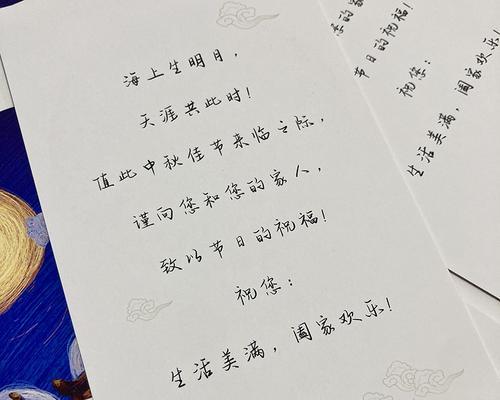 海上生明月，
天涯共此时！
值此中秋佳节来临之际，
谨向您和您的家人，
致以节日的祝福！
祝您：
生活美满，阖家欢乐！
您的家
节日的祝福！
祝您：
生活美满，阖家欢乐！